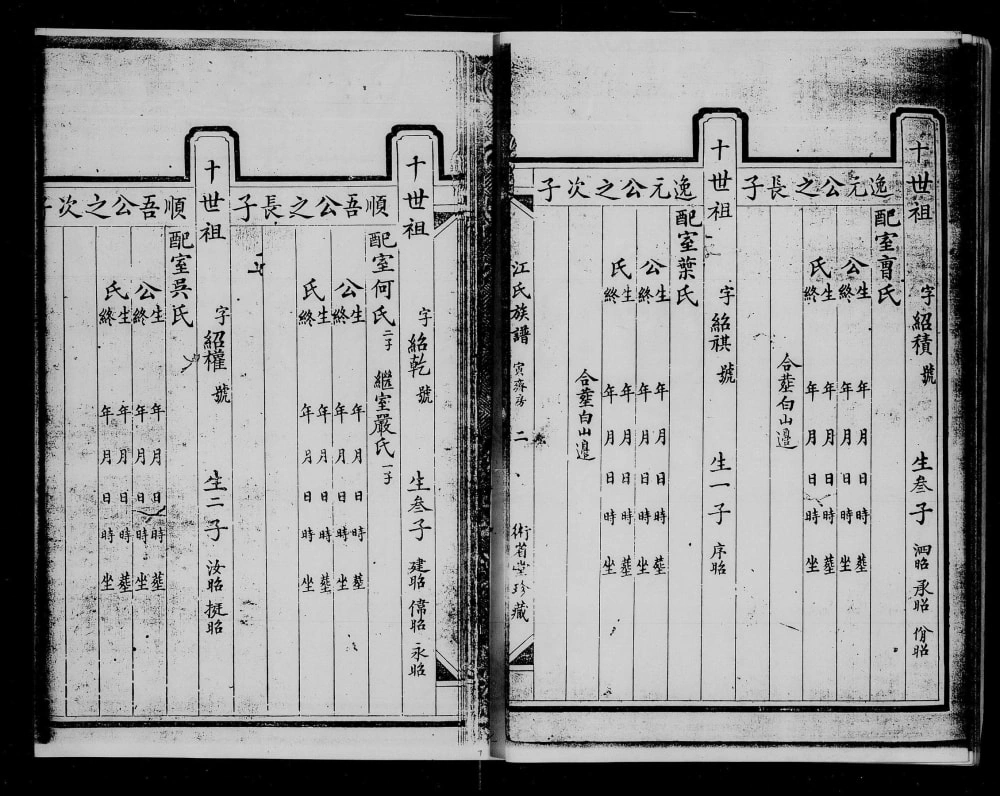 十世祖 字紹積 號 生叁子 泗昭 承昭 佾昭
逸元公之長子
配室曺氏
公生 年月日時 塟
終 年月日時 坐
氏生 年月日時 塟
終 年月日時 坐
合塟白山邉
十世祖 字紹祺 號 生一子 序昭
逸元公之次子
配室葉氏
公生 年月日時 塟
終 年月日時 坐
氏生 年月日時 塟
終 年月日時 坐
合塟白山邉
江氏族譜 寅齋房 二 術省堂珍藏
十世祖 字紹乾 號 生叁子 建昭 偉昭 永昭
順吾公之長子
配室何氏 二子 繼室嚴氏 一子
公生 年月日時 塟
終 年月日時 坐
氏生 年月日時 塟
終 年月日時 坐
十世祖 字紹權 號 生二子 汝昭 挺昭
順吾公之次子
配室吳氏
公生 年月日時 塟
終 年月日時 坐
氏生 年月日時 塟
終 年月日時 坐